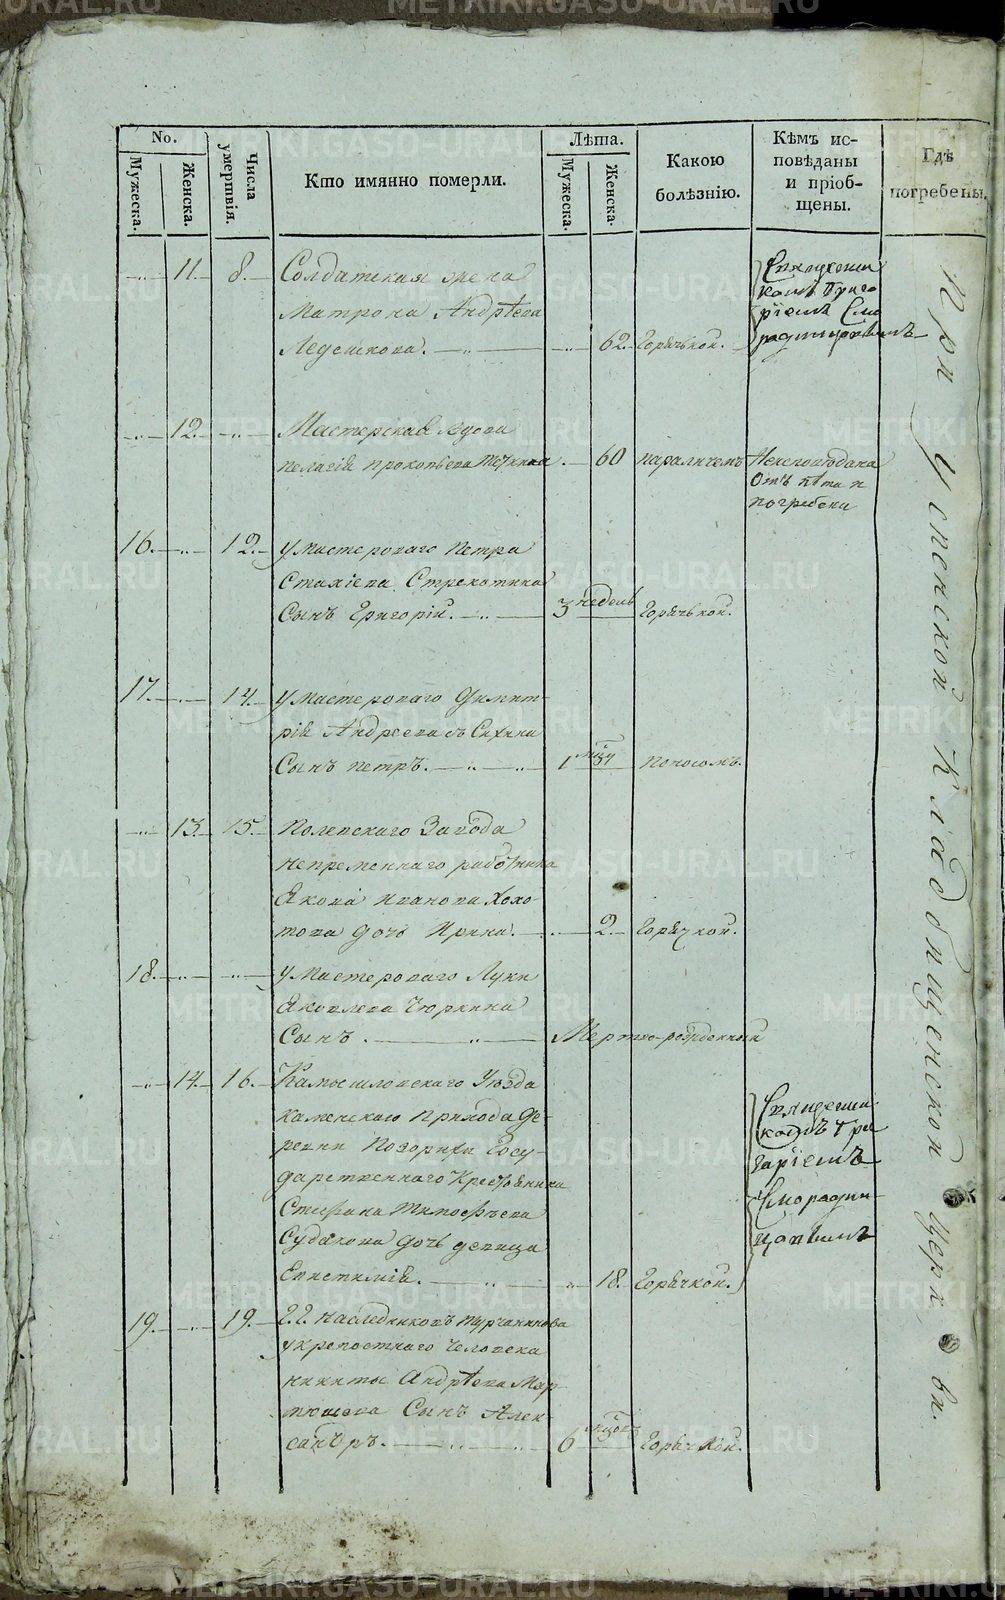 No.
Мужеска.
Женска.
Числа умертвія.
Кто имянно померли.
Лѣта.
Мужеска.
Женска.
Какою болѣзнію.
Кѣмъ исповѣданы и пріобщены.
Гдѣ погребены.
11. 8. Солдатская жена
Матрона Андрѣева
Ледешкова. 62. Горячькой.
Священни
комъ Григо
ріемъ Смо
родинцовымъ
12. Мастерская вдова
пелагія прокопьева 60 параличемъ Неисповѣдана
Отъ пѣта и
погребена
16. 12. у мастероваго Петра
Стахіева Стрекотина
Сынъ Григорій. 3 недель Горячькой.
17. 14. у мастероваго Димит-
рія Андреева
Сынъ петръ. 1 Поносомъ.
13. 15. Полевскаго Завода
непременнаго работника
Якова Иванова Хохо-
това дочь Ирина. 2. Горячкой.
18. у мастероваго Луки
Яковлева Чюркина
Сынъ. Мертво-рожденный
14. 16. Камышловскаго Уѣзда
каменскаго прихода де-
ревни Позарихи Госу-
дарственнаго Крестьянина
Стефана Тимофѣева
Судакова дочь девица
Епистимія. 18. Горячкой.
Священни-
комъ Гри
горіемъ
Смородин-
цовымъ
19. 19. Г.Г. наследниковъ турчанинова
у крепостнаго человека
никиты Андрѣева Мар-
тюшева Сынъ Алек-
сандръ. 6 Горячкой.
При Успенской Кладбищенской Церкви.
METRIKI.GASO-URAL.RU